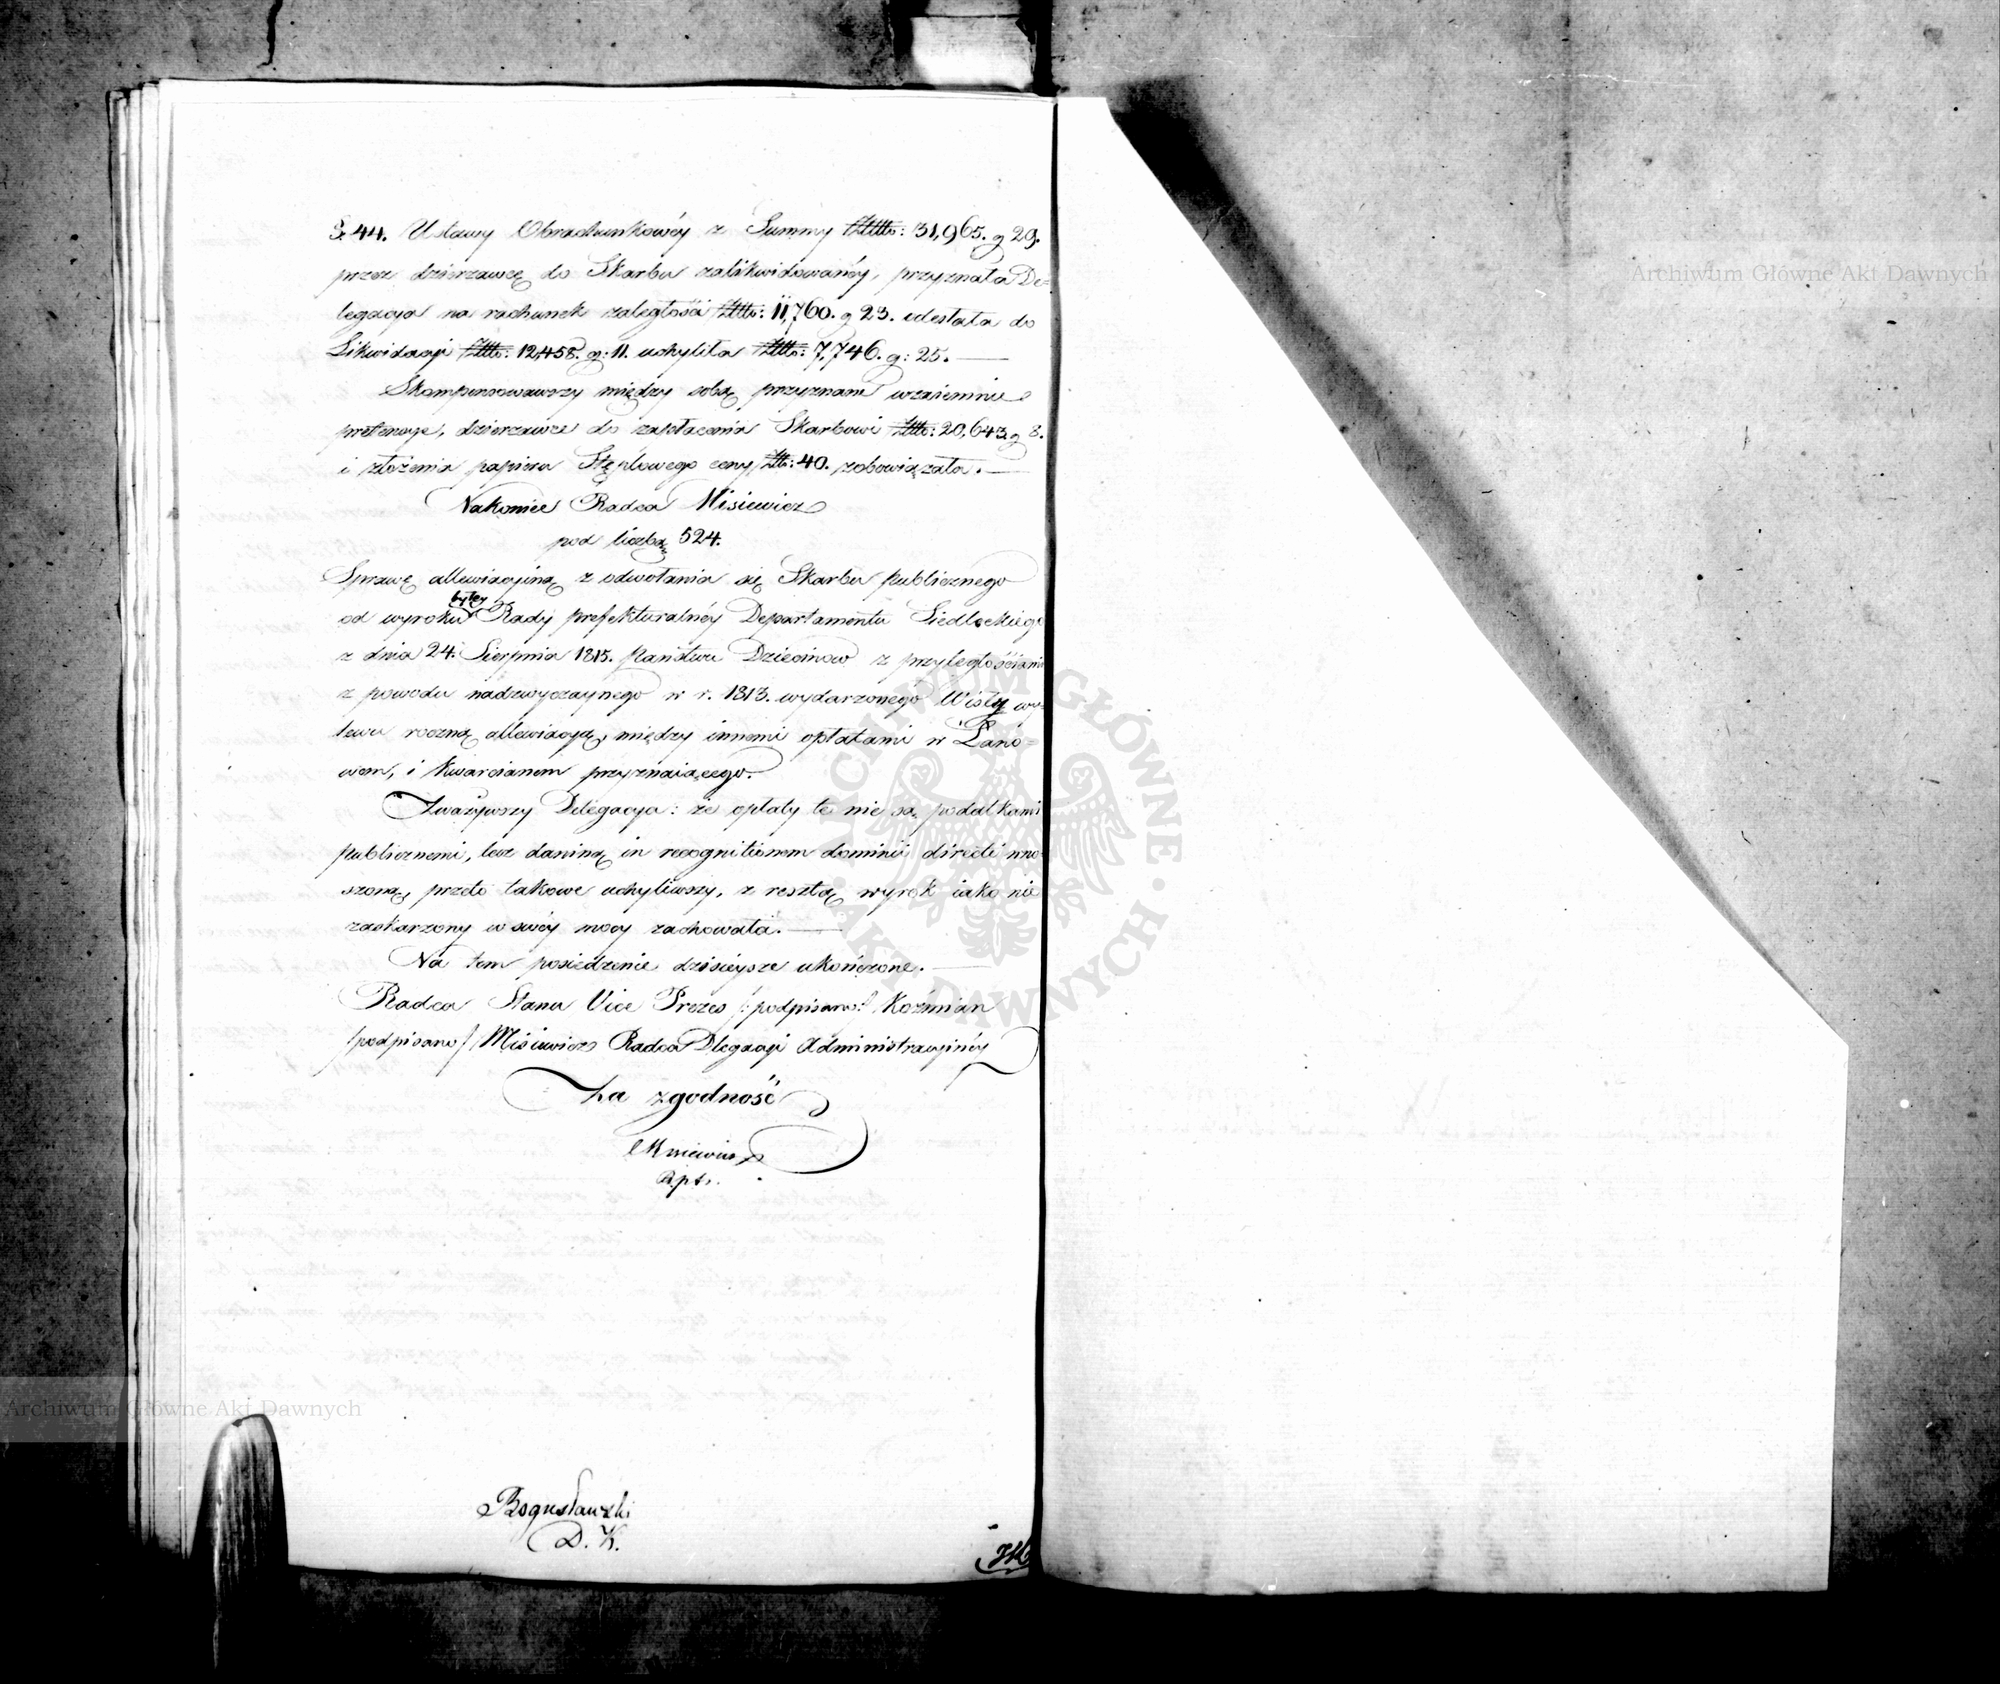 §. 44. Ustawy Obrachunkowéy z Summy Złtto: 31,965. g 29.
przez dzierzawcę do Skarbu zalikwidowanéy, przyznała De=
legacya na rachunek zaległości Złtto: 11,760. g 23. odesłała do
Likwidacyi Złtto: 12,458. g: 11. uchyliła Złtto: 7,746. g: 25.
Skompensowawszy między sobą przyznane wzaiemnie
pretensye, dzierzawcę do zapłacenia Skarbowi Złtto: 20,643. g 8.
i złożenia papieru Stęplowego ceny Złto: 40. zobowiązała.
Nakoniec Radca Misiewicz
pod liczbą 524.
Sprawę allewiacyiną z odwołania się Skarbu publicznego
od wyroku byłey Rady prefekturalnéy Departamentu Siedleckiego
z dnia 24. Sierpnia 1815. Państwu Dziecinow z przyległościami
z powodu nadzwyczaynego w r. 1813. wydarzonego Wisły wy=
lewu roczną allewiacyą, między innemi opłatami w Łano=
wem, i kwarcianem przyznaiącego.
Zważywszy Delegacya: że opłaty te nie są podatkami
publicznemi, lecz daniną in recognitionem dominii directi wno
szoną, przeto takowe uchyliwszy, z resztą wyrok iako nie
zaskarzony w swéy mocy zachowała.
Na tem posiedzenie dzisieysze ukończone.
Radca Stanu Vice Prezes /:podpisano:/ Koźmian
/podpisano/ Misiewicz Radca Dlegacyi Administracyinéy
Za zgodność
Bogusławski
D. K.
Archiwum Główne Akt Dawnych
Archiwum Główne Akt Dawnych
ARCHIWUM GŁÓWNE AKT DAWNYCH